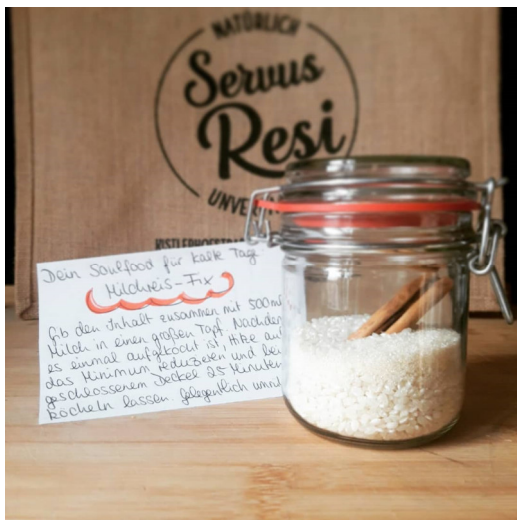 NATÜRLICH
Servus
Resi
Dein Soulfood für kalte Tag
Milchreis-Fix
Gib den Inhalt zusammen mit 500ml
Milch in einen großen Topf. Nachdem
es einmal aufgekocht ist, Hitze auf
das Minimum reduzieren und bei
geschlossenem Deckel 25 Minuten
köcheln lassen. gelegentlich